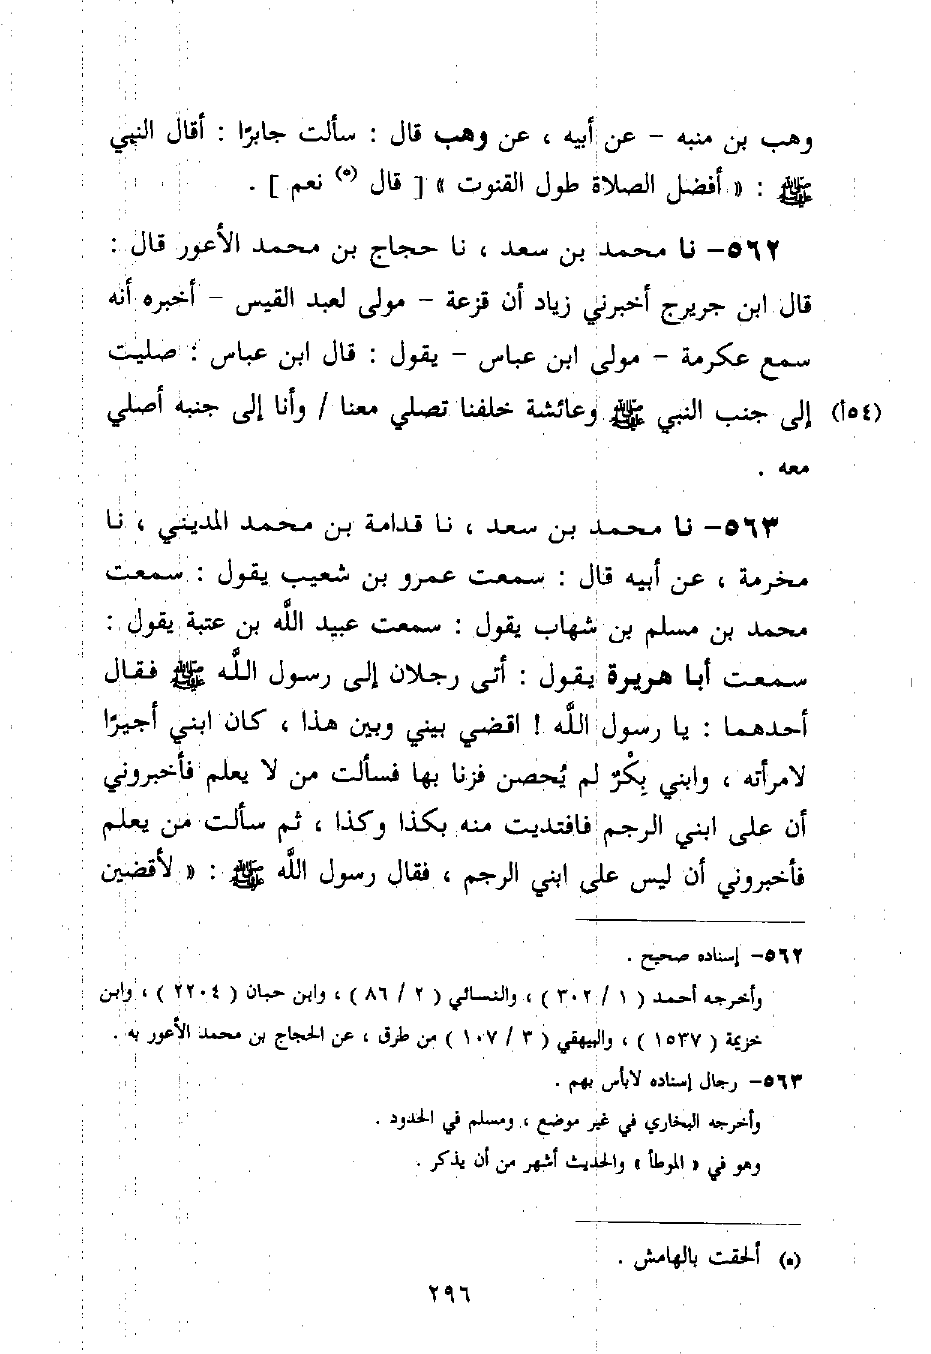 وهب بن منبه – عن أبيه ، عن وهب قال : سألت جابرًا : أقال النبي
ﷺ : « أفضل الصلاة طول القنوت » [ قال (*) نعم ] .
٥٦٢– نا محمد بن سعد ، نا حجاج بن محمد الأعور قال :
قال ابن جريرج أخبرني زياد أن قزعة – مولى لعبد القيس – أخبره أنه
سمع عكرمة – مولى ابن عباس – يقول : قال ابن عباس : صليت
(٥٤أ) إلى جنب النبي ﷺ وعائشة خلفنا تصلي معنا / وأنا إلى جنبه أصلي
معه .
٥٦٣– نا محمد بن سعد ، نا قدامة بن محمد المديني ، نا
مخرمة ، عن أبيه قال : سمعت عمرو بن شعيب يقول : سمعت
محمد بن مسلم بن شهاب يقول : سمعت عبيد اللَّه بن عتبة يقول :
سمعت أبا هريرة يقول : أتى رجلان إلى رسول اللَّه ﷺ فقال
أحدهما : يا رسول اللَّه ! اقضي بيني وبين هذا ، كان ابني أجيرًا
لامرأته ، وابني بِكْرٌ لم يُحصن فزنا بها فسألت من لا يعلم فأخبروني
أن على ابني الرجم فافتديت منه بكذا وكذا ، ثم سألت من يعلم
فأخبروني أن ليس على ابني الرجم ، فقال رسول اللَّه ﷺ : « لأقضين
٥٦٢– إسناده صحيح .
وأخرجه أحمد ( ١ / ٣٠٢ ) ، والنسائي ( ٢ / ٨٦ ) ، وابن حبان ( ٢٢٠٤ ) ، وابن
خزيمة ( ١٥٣٧ ) ، والبيهقي ( ٣ / ١٠٧ ) من طرق ، عن الحجاج بن محمد الأعور به .
٥٦٣– رجال إسناده لابأس بهم .
وأخرجه البخاري في غير موضع ، ومسلم في الحدود .
وهو في « الموطأ » والحديث أشهر من أن يذكر .
(*) ألحقت بالهامش .
٢٩٦